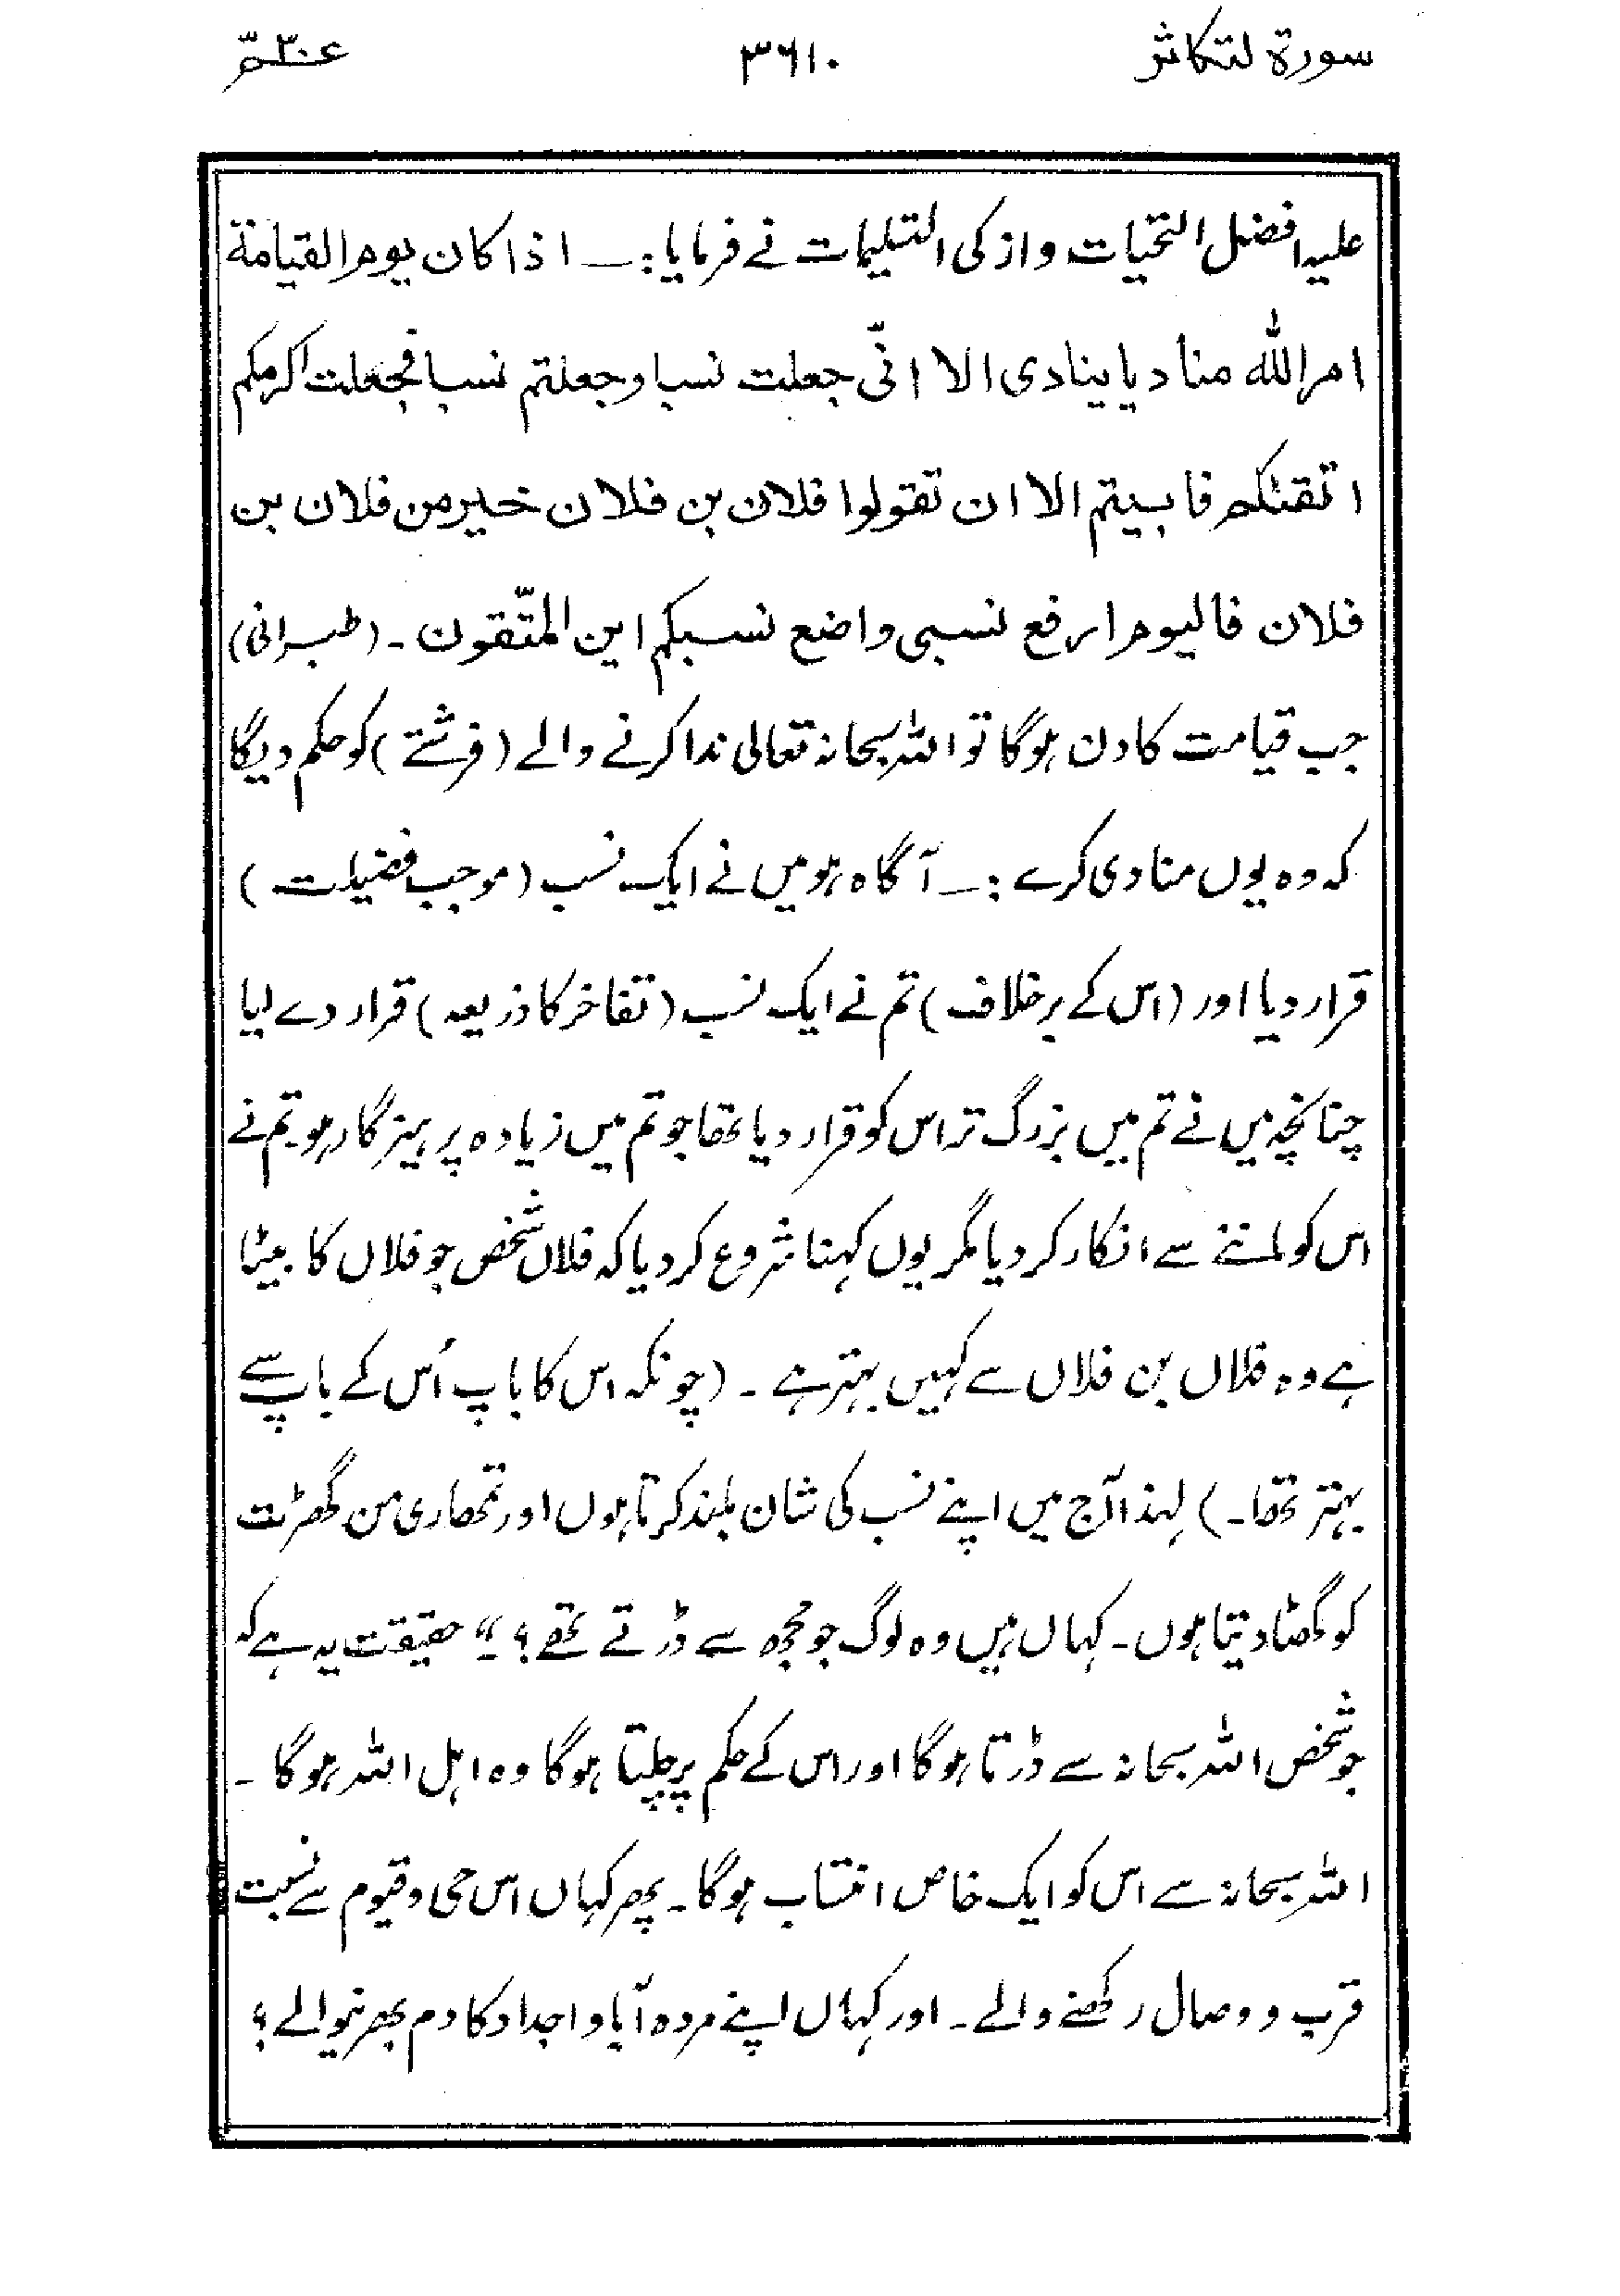 سورة لتکاثر
۳۶۱۰
عم ۳۰
علیہ افضل التحیات وازکی التسلیمات نے فرمایا:۔ اذا کان یوم القیامة
امر الله منادیا ینادی الا انّی جعلت نسبا وجعلتم نسبا فجعلت اکرمکم
اتقٰکم فابیتم الا ان تقولوا فلان بن فلان خیر من فلان بن
فلان فالیوم ارفع نسبی واضع نسبکم این المتّقون۔ (طبرانی)
جب قیامت کا دن ہوگا تو اللہ سبحانہ تعالی ندا کرنے والے (فرشتے) کو حکم دیگا
کہ وہ یوں منادی کرے :۔ آگاہ ہو میں نے ایک نسب (موجب فضیلت)
قرار دیا اور (اس کے برخلاف) تم نے ایک نسب (تفاخر کا ذریعہ) قرار دے لیا
چنانچہ میں نے تم میں بزرگ تر اس کو قرار دیا تھا جو تم میں زیادہ پرہیزگار ہو تم نے
اس کو ماننے سے انکار کر دیا مگر یوں کہنا شروع کر دیا کہ فلاں شخص جو فلاں کا بیٹا
ہے وہ فلاں بن فلاں سے کہیں بہتر ہے۔ (چونکہ اس کا باپ اُس کے باپ سے
بہتر تھا۔) لہذا آج میں اپنے نسب کی شان بلند کرتا ہوں اور تمھاری من گھڑت
کو گھٹا دیتا ہوں۔ کہاں ہیں وہ لوگ جو مجھ سے ڈرتے تھے؟" حقیقت یہ ہے کہ
جو شخص اللہ سبحانہ سے ڈرتا ہوگا اور اس کے حکم پر چلتا ہوگا وہ اہل اللہ ہوگا۔
اللہ سبحانہ سے اس کو ایک خاص انتساب ہوگا۔ پھر کہاں اس حی و قیوم سے نسبت
قرب و وصال رکھنے والے۔ اور کہاں اپنے مردہ آبا و اجداد کا دم بھرنیوالے؟